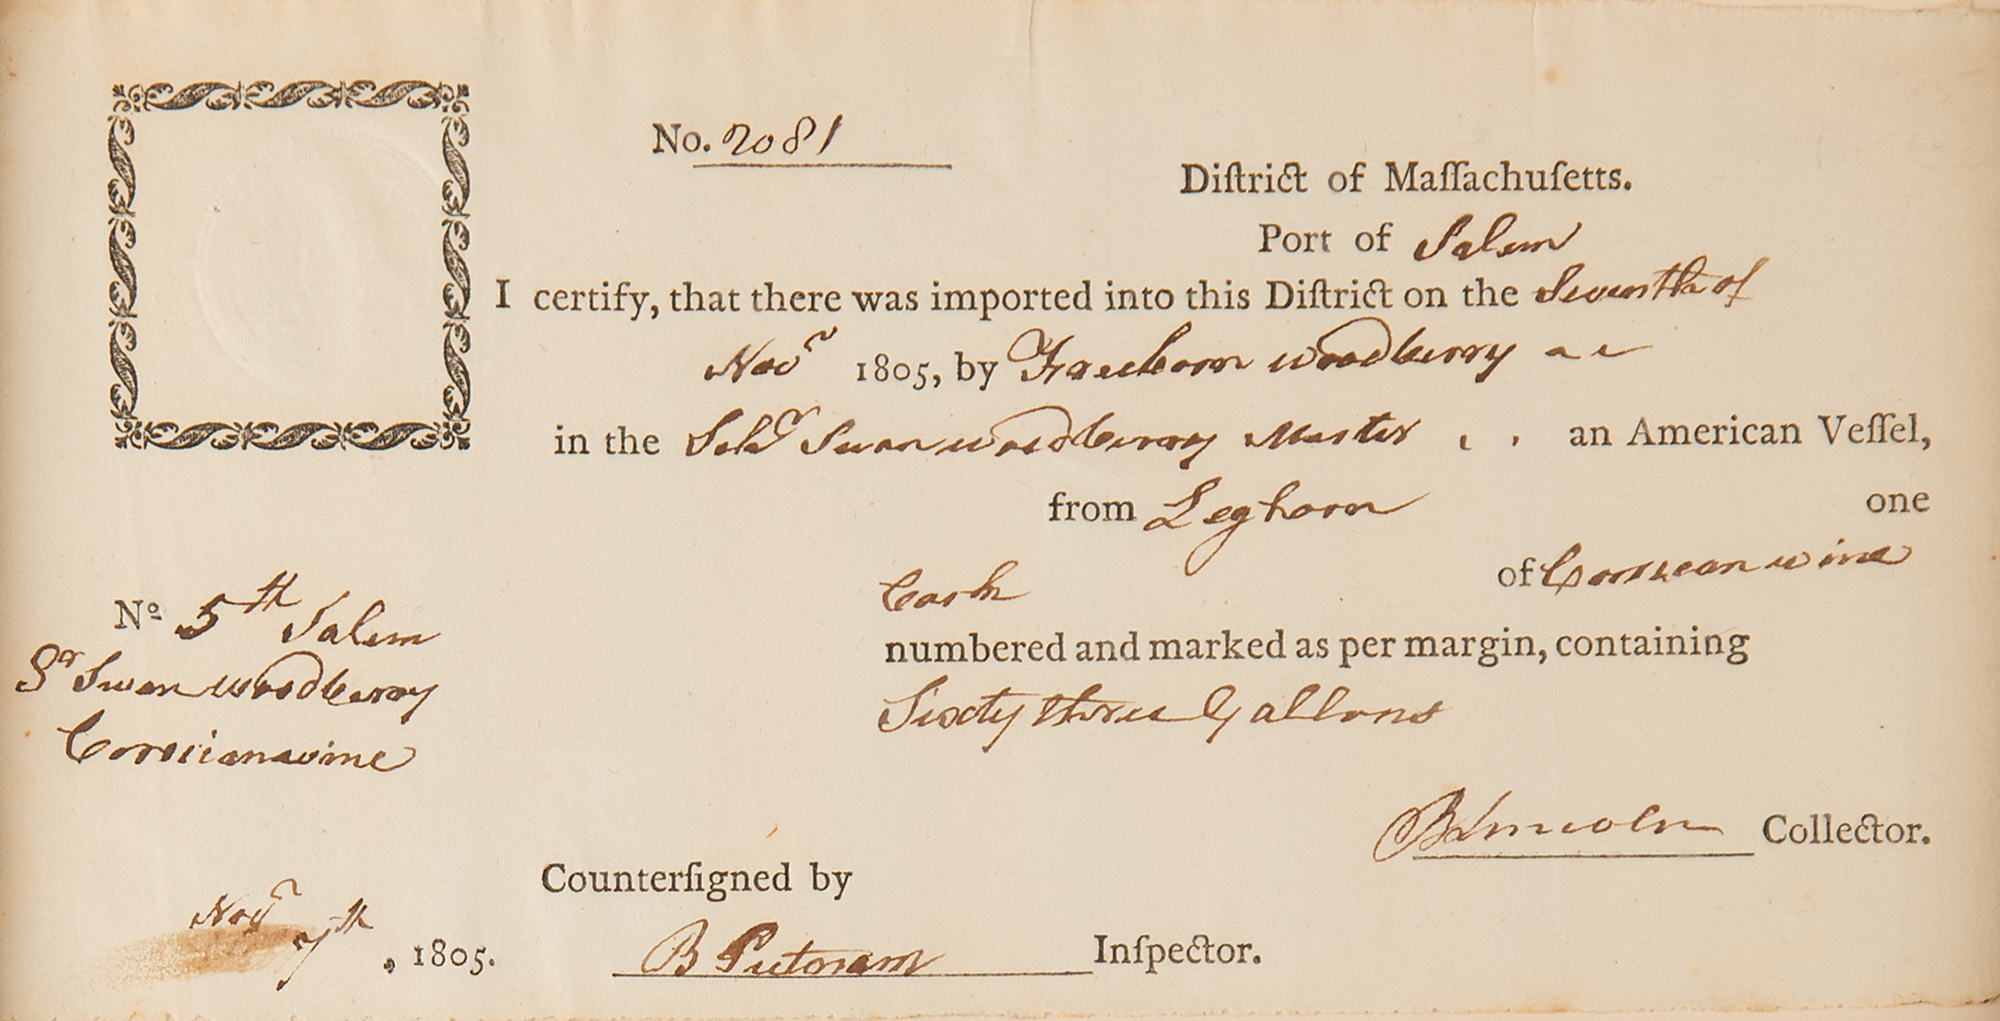 No. 2081
Diſtrict of Maſſachuſetts.
Port of Salem
I certify, that there was imported into this Diſtrict on the Seventh of
Novr 1805, by Freeborn Woodberry
in the Schr Swan Woodberry Master an American Veſſel,
from Leghorn one
Cask of Corsican wine
numbered and marked as per margin, containing
Sixty three Gallons
No 5th Salem
Sr Swan Woodberry
Corsican wine
B Lincoln Collector.
Counterſigned by
Novr 7th, 1805.
B Putnam Inſpector.